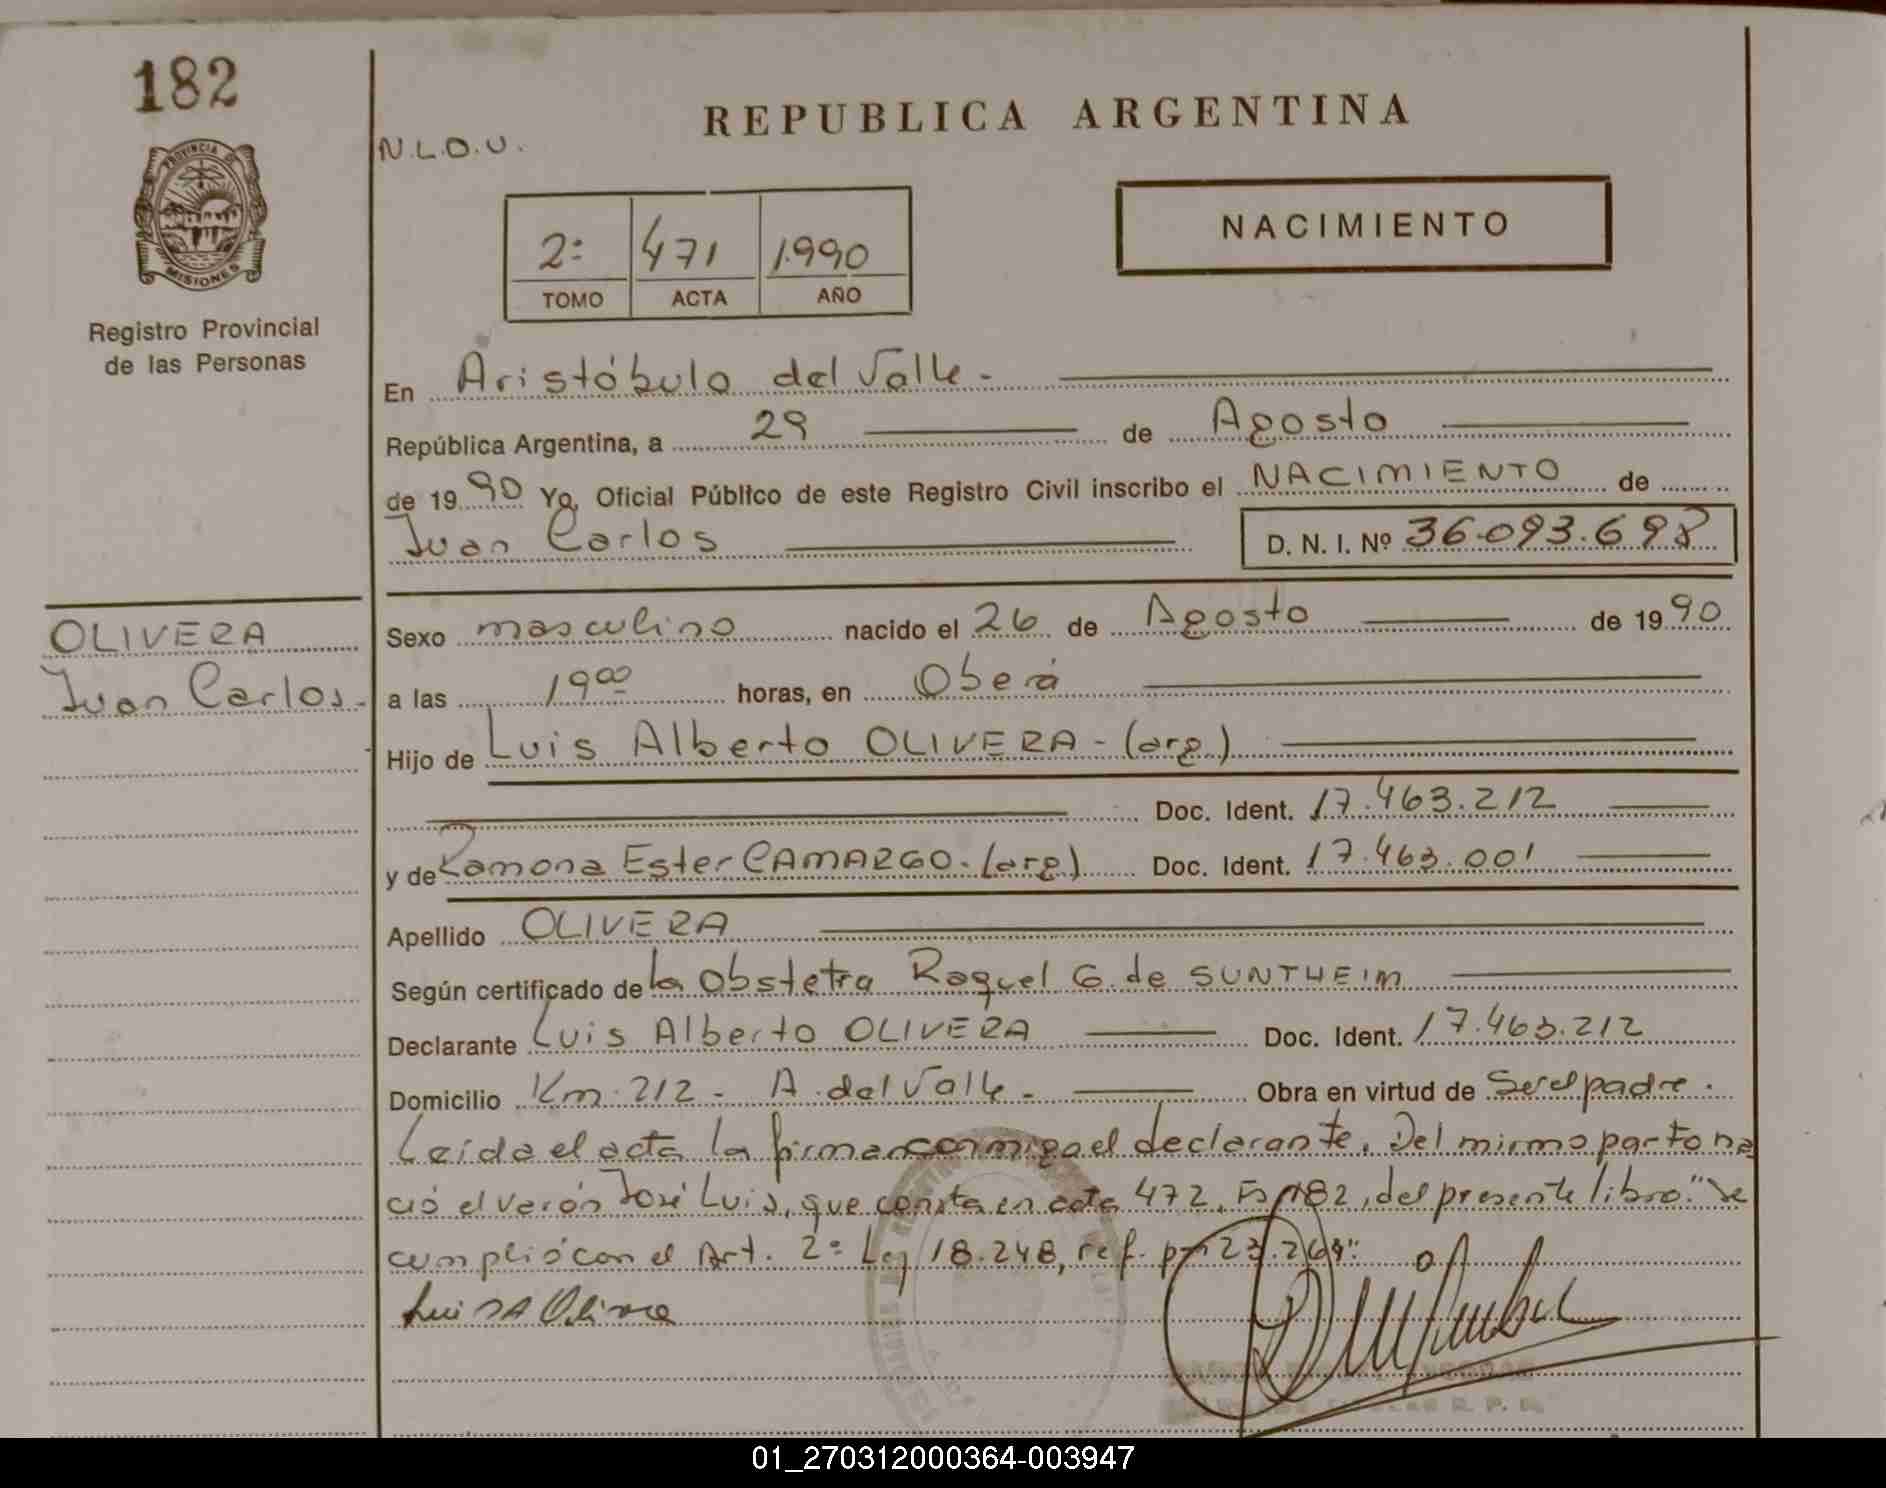 182
REPUBLICA ARGENTINA
N.L.O.U.
PROVINCIA DE
MISIONES
Registro Provincial
de las Personas
2º 471 1.990
TOMO ACTA AÑO
NACIMIENTO
En Aristóbulo del Valle.-
República Argentina, a 29 de Agosto
de 19 90 Yo, Oficial Público de este Registro Civil inscribo el NACIMIENTO de
Juan Carlos
D. N. I. Nº 36.093.698
OLIVERA
Juan Carlos.-
Sexo masculino nacido el 26 de Agosto de 19 90
a las 19 00 horas, en Oberá
Hijo de Luis Alberto OLIVERA - (arg.)
Doc. Ident. 17.463.212
y de Ramona Ester CAMARGO.- (arg.) Doc. Ident. 17.463.001
Apellido OLIVERA
Según certificado de la Obstetra Raquel G. de SUNTHEIM
Declarante Luis Alberto OLIVERA Doc. Ident. 17.463.212
Domicilio Km. 212 - A. del Valle.- Obra en virtud de Ser el padre.
Leída el acta la firma conmigo el declarante. Del mismo parto na
ció el varón José Luis, que consta en acta 472, Fº 182, del presente libro. "Se
cumplió con el Art. 2º Ley 18.248, ref. por 23.264".
Luis A Olivera
01_270312000364-003947